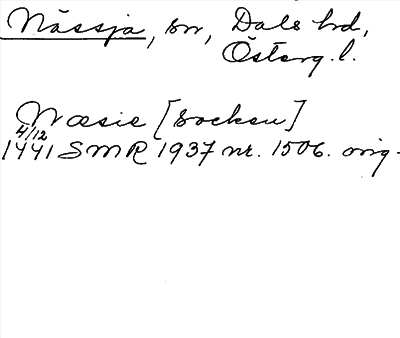 Nässja, sn, Dals hd,
Österg.l.
Næsie [socken]
4/12
1441 SMR 1937 nr. 1506. orig.